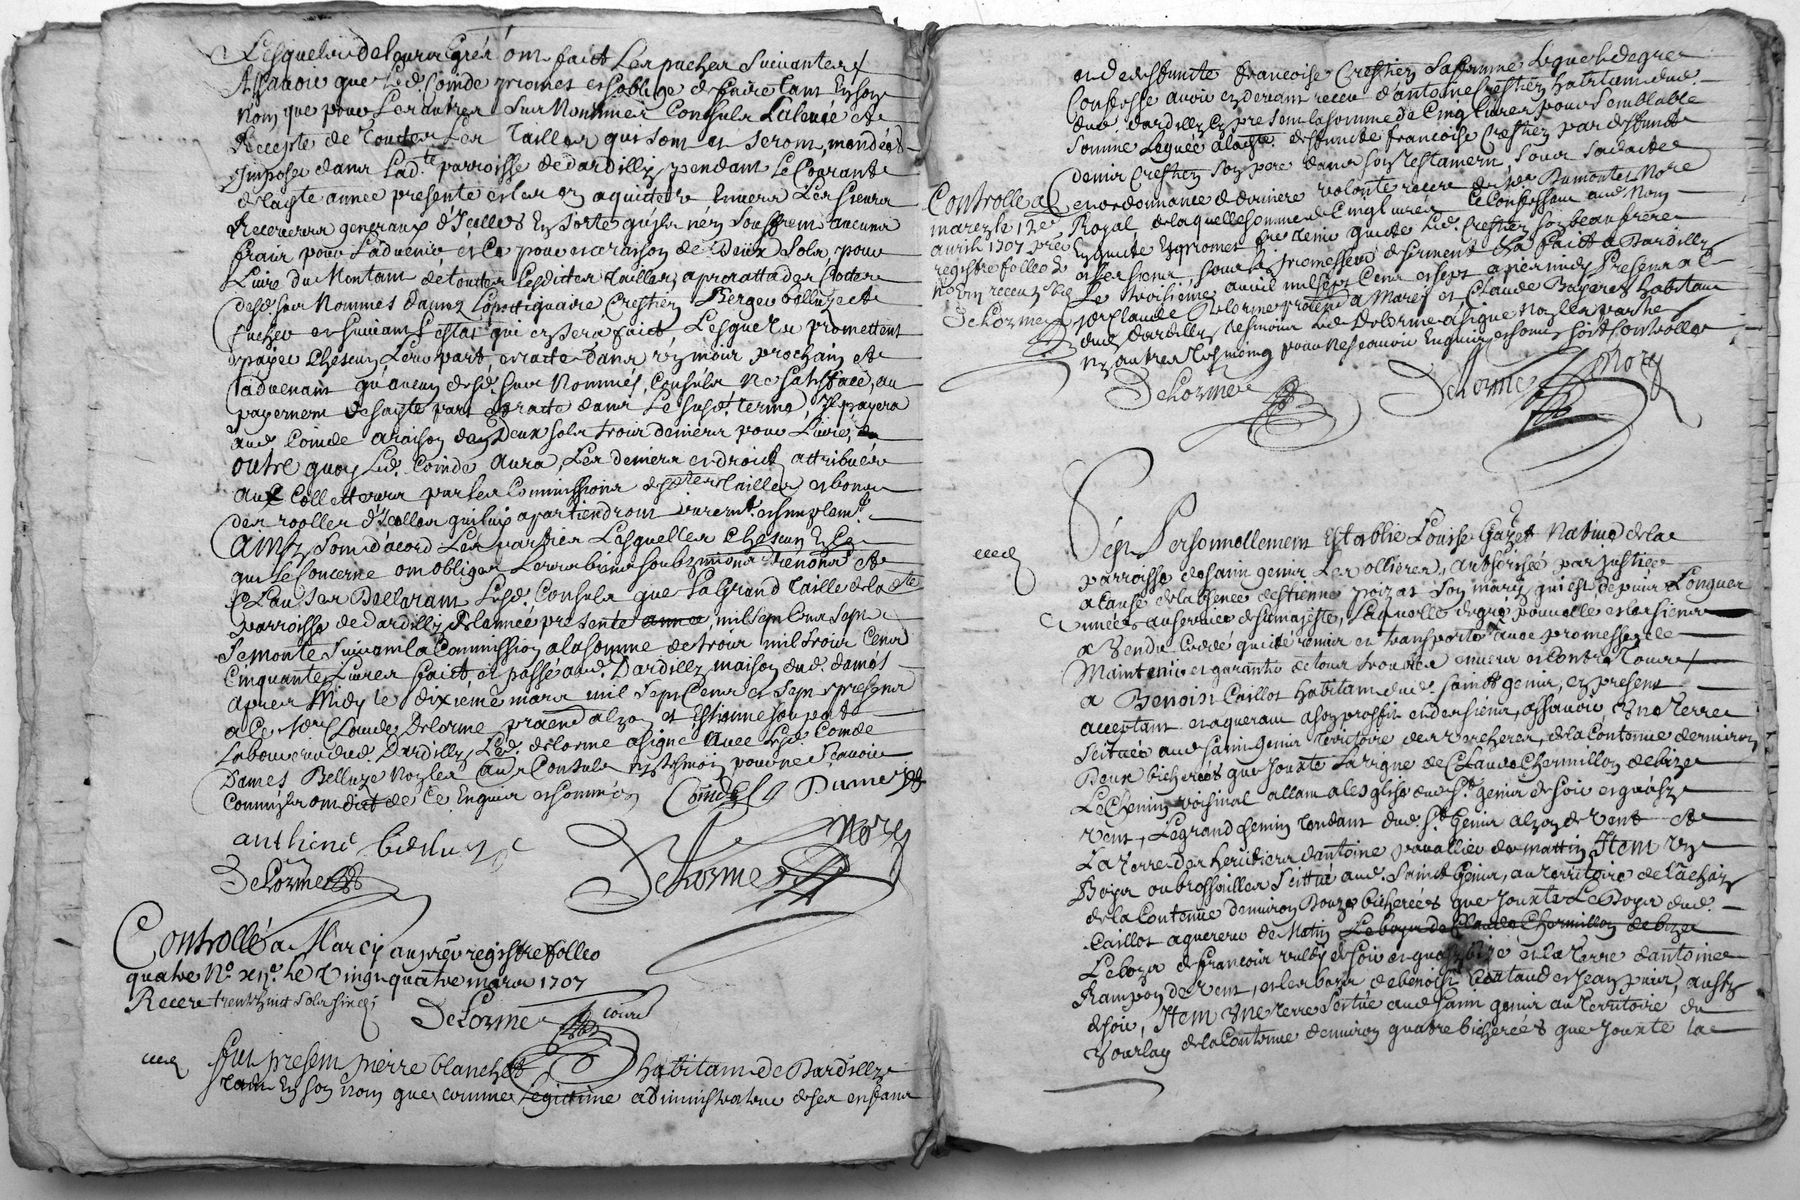 Lesquels de leur gré ont faict Les paches Suivantes
Assavoir que Led. Coinde promet et soblige de faire tant En son
Nom que pour Les autres Sus Nommés Consuls La levée et
Recepte de Toutes Les Tailles qui sont et seront mandées
Imposer dans Lad.te parroisse de dardilly pendant Le Courant
de lad.te année presente et les en aquicter Envers Les sieurs
Receveurs generaux d'Icelles En sorte quils nen souffrent aucuns
frais pour Ladvenir, et Ce pour et a raison de Deux Sols, pour
Livre du Montant de touttes Lesdites tailles, a proratta des Cottes
desd. sus Nommés dames Crestien, Berger belluze et
et suivant Lestat qui en sera faict Lesquels promettent
payer Chascun Leur part et ratte dans un mois prochain et
Ladvenant qu'aucun desd. sus Nommés, Consuls Ne satisface, au
payement de sad.te part et ratte dans Le susd. terme, Il payera
aud. Coinde a raison de Deux sols trois deniers pour Livre,
outre quoy Led. Coinde Aura, Les deniers et droicts attribués
aux Collecteurs par les Commissions desd.tes Tailles et bons
des roolles d'Icelles qui luy apartiendront
Ainsy Sont d'acord Les parties Lesquelles Chascun En Ce
qui Le Concerne ont obligés Leurs biens soubzmions renons et
Et Lau Ser Declarant Lesd. Consuls que La Grand Taille de lad.te
parroisse de dardilly de lannée presente mil sept Cens sept
Se monte Suivant la Commission a la somme de trois mil trois Cens
Cinquante Livres faict, et passé aud. Dardilly maison dud. dames
apres Midy le dixieme mars mil sept Cens et sept presens
a Ce Claude Delorme praticien dalzon et Estienne
Laboureur dud. Dardilly Led. delorme a signé avec Lesd. Coinde
Dames Belluze Non les autres Consuls ny tesmoin pour ne Scavoir
Comme ils ont dict de Ce Enquis et sommés Coinde Dames
anthine beluze
Delorme Delorme Nore
Controllé a Marcy au pre.r registre folleo
quatre N.o xij.o le Vingt quatre mars 1707
Recu trente huit sols six d.
Delorme
Fut present pierre blanchet habitant de Dardilly
tant En son nom que comme Legitime administrateur de ses enfans
et de deffuncte francoise Crestien sa femme, Lequel de gré
Confesse avoir cy devant receu d'antoine Crestien habitant dud.
dud. dardilly Cy present la somme de Cinq Livres pour semblable
somme Leguée a lad.te deffuncte francoise Crestien par deffunct
denis Crestien son pere dans son Testament, soubs sa datte
et ordonnance de derniere volonté receu de M.e Dumont Nore
Royal, de laquelle somme de Cinq Livres Ce Confessant aud. Nom
Enquicte Et promet fre tenir quicte Led. Crestien son beau frere
et les siens, soubs Les promesses et serment &a faict a Dardilly
Le troisieme avril mil sept Cens et sept apres midy Presens a Ce
S.r Claude Delorme praticien a Marcy et Claude Bayeres habitant
dud. dardilly tesmoins Led. Delorme a signé Non les parties
ny autre tesmoing pour ne scavoir Enquis et sommés soit Controllé
Delorme Delorme Nore
Controllé a
marcy le 12e
avril 1707 pre.r
registre folleo
Delorme
Fut Personnellement Establie Louise Gazet Native de la
parroisse de saint genis Les ollieres, authorisée par justice
a Cause de labsence d'estienne poizat Son mary qui est depuis Longues
annees au service de sa majesté, Laquelle de gré pour elle et les siens
a Vendu Cedé quicté remis et transporté avec promesse de
Maintenir et garantir de tous troubles envers et contre Tous
a Benoist Caillot habitant dud. sainct genis, cy present
acceptant et aquerant a son proffit et des siens, assavoir Une Terre
scituée aud. saint Genis Territoire des Vercheres, de la Contenue denviron
Deux bicherées que Jouxte La vigne de Claude Chermillon de bize
Le Chemin voisinal allant a Leglise dud. S.t genis de soir et quasy
vent, Le grand Chemin Tendant dud. S.t Genis alzon de Vent et
La Terre des heritiers dantoine pavallier de mattin, Item Un
Boys ou brossailles Scittué aud. Sainct Genis, au territoire de
de la Contenue denviron Douze bicherées que Jouxte Le Boys dud.
Caillot aquereur de Matin Le boys de Claude Chermillon de bize
Le boys de francois de soir et quasy bize et la Terre dantoine
Rampon de Vent, et les boys de benoist et Jean pair, aussy
de soir, Item Une Terre scittuée aud. saint genis au Territoire du
de la Contenue denviron quatre bicherées que Jouxte La